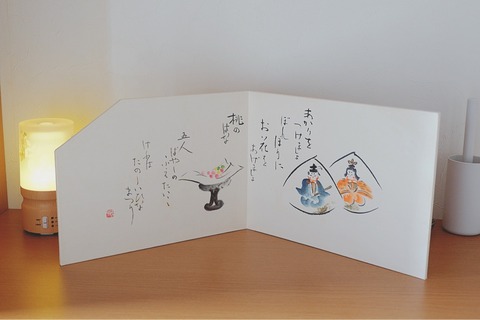 あかりを
つけましょ
ぼんぼりに
お花を
あげましょ
桃の
はな
五人
ばやしの
ふえたいこ
けふは
たのしいひな
まつり